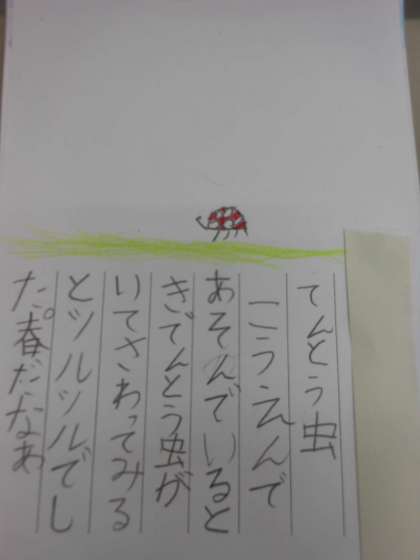 てんとう虫
こうえんで
あそんでいると
きてんとう虫が
いてさわってみる
とツルツルでし
た。春だなあ